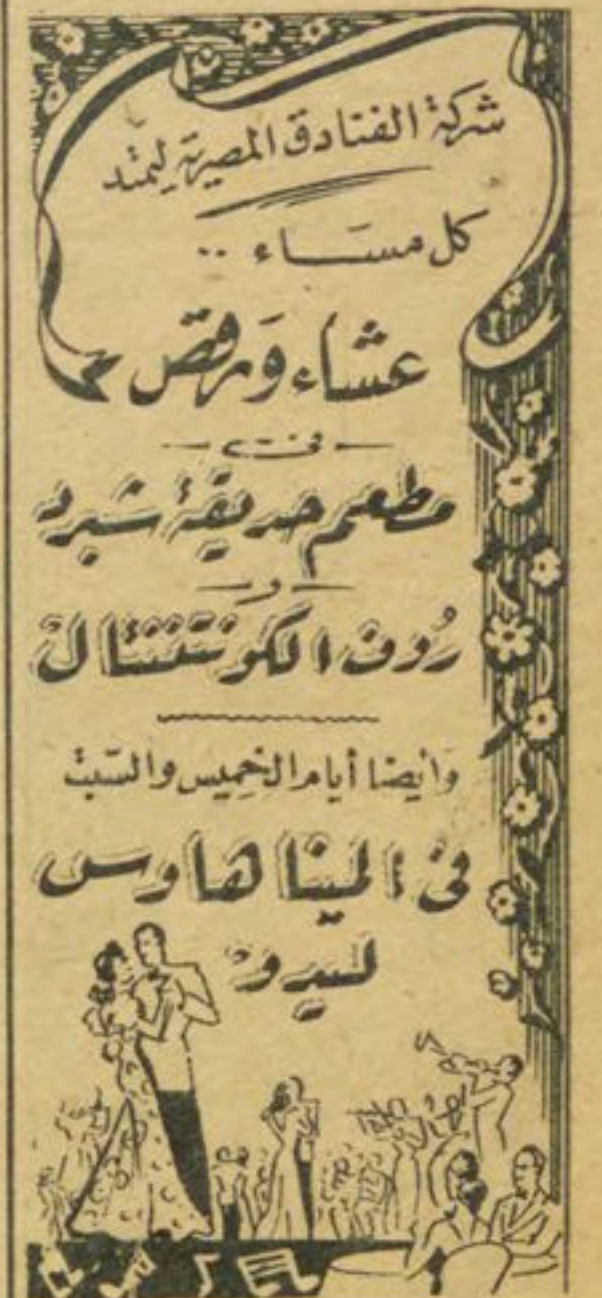 شركة الفنادق المصرية ليمتد
كل مساء ..
عشاء ورقص
في
مطعم حديقة شبرد
و
رُوف الكونتننتال
وأيضا أيام الخميس والسبت
في المينا هاوس
ليدو